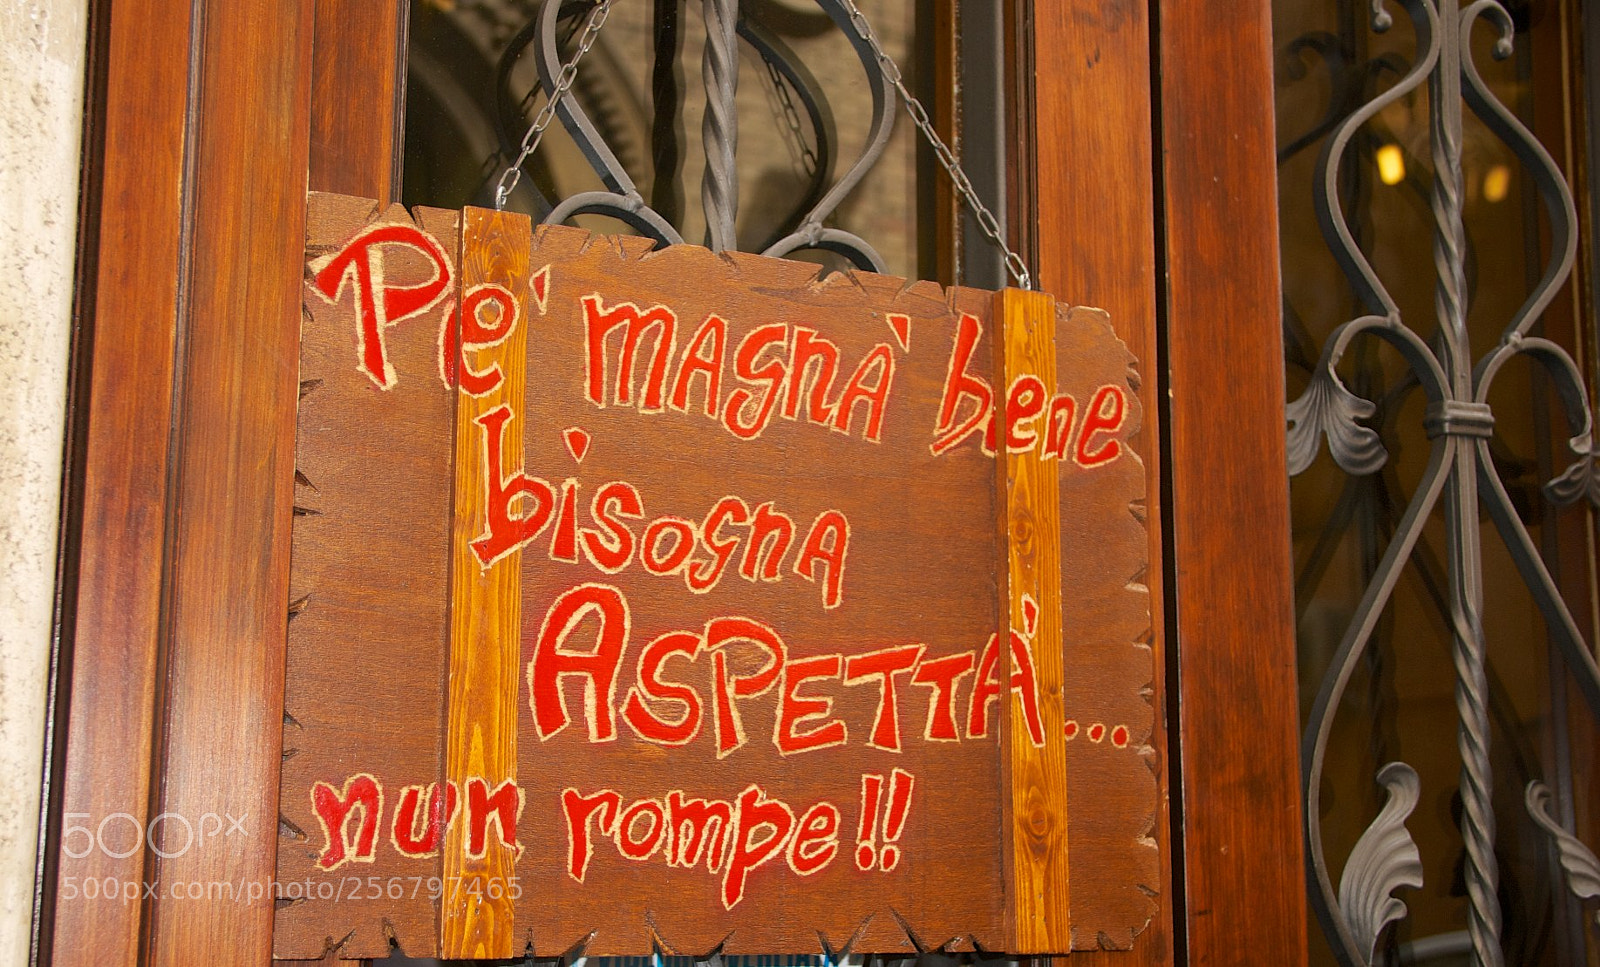 Pe' magnà bene
bisogna
ASPETTÀ...
nun rompe!!
500px
500px.com/photo/256797465